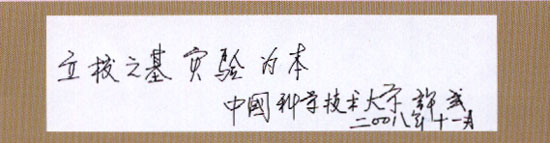 立校之基 实验为本
中國科学技术大学 許武
二〇〇八年十一月